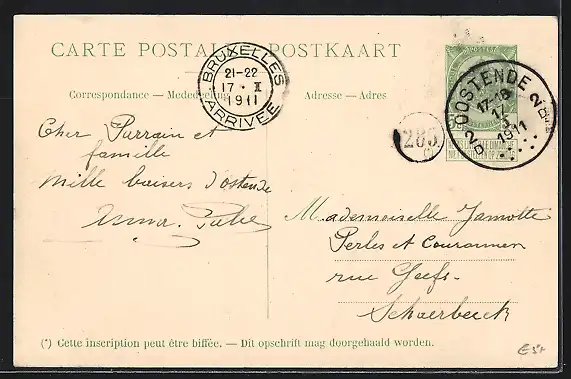 CARTE POSTALE POSTKAART
Correspondance — Mededeeling
Adresse — Adres
BRUXELLES
21-22
17 · II
1911
ARRIVÉE
OOSTENDE 2
17-18
17
1911
285
Cher Parrain et
famille
Mille baisers d'ostende
Mademoiselle Jamotte
Perles et Couronnes
rue Geefs
Schaerbeeck
(*) Cette inscription peut être biffée. — Dit opschrift mag doorgehaald worden.